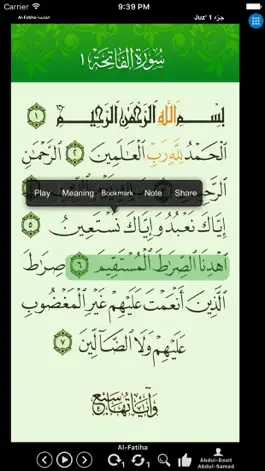 Carrier 9:39 PM
Al-Fatiha-الفاتحة Juz' 1 جزء
سُورَةُ الفَاتِحَة ١
بِسْمِ اللَّهِ الرَّحْمَٰنِ الرَّحِيمِ ١
الْحَمْدُ لِلَّهِ رَبِّ الْعَالَمِينَ ٢ الرَّحْمَٰنِ
Play Meaning Bookmark Note Share
إِيَّاكَ نَعْبُدُ وَإِيَّاكَ نَسْتَعِينُ
٥ اهْدِنَا الصِّرَاطَ الْمُسْتَقِيمَ ٦ صِرَاطَ
الَّذِينَ أَنْعَمْتَ عَلَيْهِمْ غَيْرِ الْمَغْضُوبِ
عَلَيْهِمْ وَلَا الضَّالِّينَ ٧
وَآيَاتُهَا سَبْعٌ
Al-Fatiha
1
Abdul-Basit
Abdul-Samad